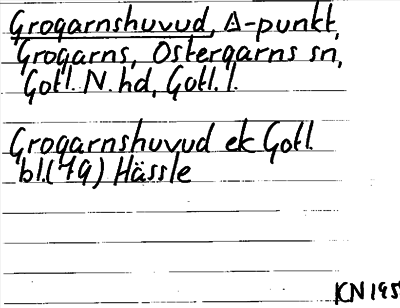 Grogarnshuvud, Δ-punkt,
Grogarns, Östergarns sn,
Gotl. N. hd, Gotl. l.
Grogarnshuvud ek Gotl.
bl. (79) Hässle
KN 195